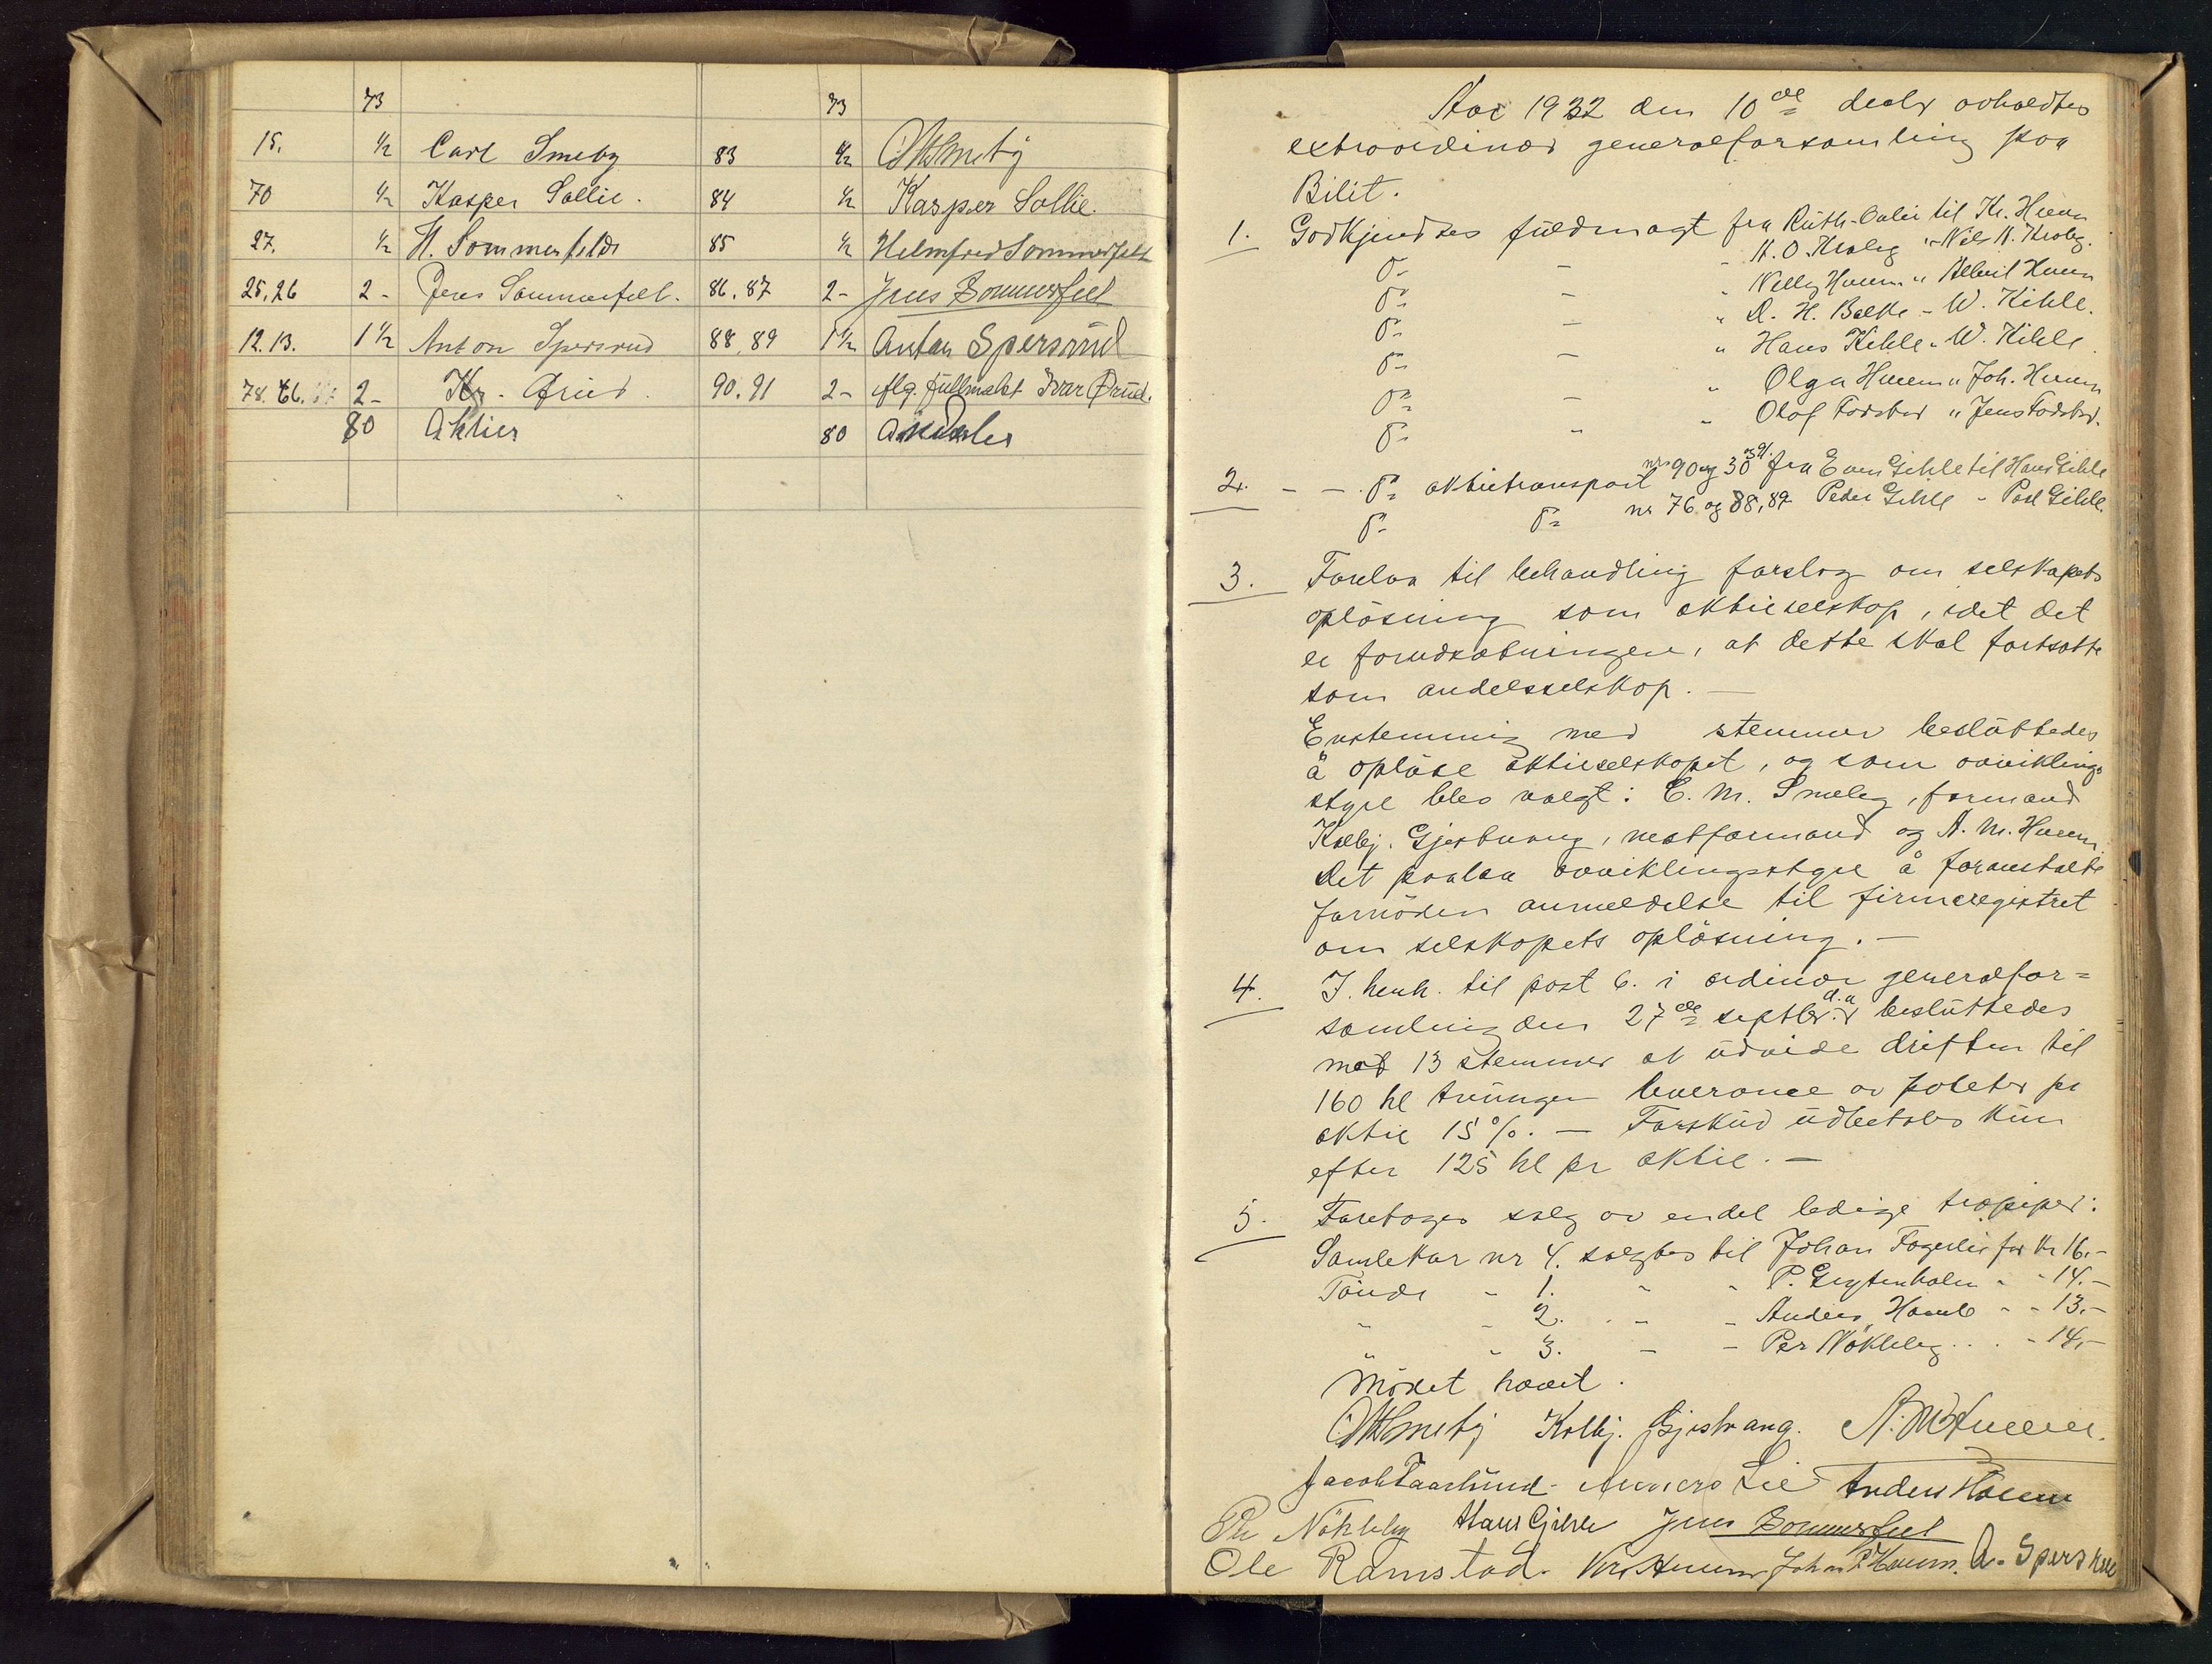 73 73
15. ½ Carl Smeby 83 ½ CMSmeby
70 ½ Kasper Sollie. 84 ½ Kasper Sollie.
27. ½ H. Sommerfeldt 85 ½ Helmfred Sommerfelt
25,26 2- Jens Sommerfelt. 86.87 2- Jens Sommerfelt
12.13. 1½ Anton Spersrud 88,89 1½ Anton Spersrud
78. 66. 2- Kr. Ørud. 90.91 2- iflg. fullmakt Ivar Ørud.
80 Aktier 80 Aktier
Aar 1932 den 10de decbr avholdtes
extraordinær generalforsamling paa
Bilit.
1. Godkjendtes fuldmagt fra Ruth Lalie til Kr. Huun
D= – – N. O. Kroby " Nils N. Kroby.
D= – " Nelly Huun " Albert Huun
D= – " D. H. Balke – W. Kihle.
D= – " Hans Kihle " W. Kihle.
D= – " Olga Huun " Joh. Huun
D= " " Olaf Fodstad " Jens Fodstad.
2. – – D= aktietransport nr 90 og 30 fra Even Gihle til Hans Gihle
D= D= nr 76 og 88,89 Peder Gihle – Paul Gihle.
3. Forelaa til behandling forslag om selskapets
opløsning som aktieselskap, idet det
er forudsætningen, at dette skal fortsætte
som andelsselskap. –
Enstemmig med stemmer besluttedes
å opløse aktieselskapet, og som avviklings
styre blev valgt: C. M. Smeby, formand
Kolbj. Gjestvang, næstformand og A. M. Huun.
Det paalaa avviklingsstyre å foranstalte
fornøden anmeldelse til firmaregistret
om selskapets opløsning. –
4. I. henh. til post 6. i ordinær generalfor=
samling den 27de septbr d.a. besluttedes
mot 13 stemmer at udvide driften til
160 hl tvungen leverance av poteter pr
aktie 15%. – Forskud udbetales kun
efter 125 hl pr aktie. –
5. Foretoges salg av endel ledige træpiper:
Samlekar nr 4. solgtes til Johan Fagerlie for kr 16.-
Tønde " 1. " " P. Grytenholm " " 14.-
" " 2. " " Anders Haemb " " 13.-
" " 3. – – Per Nøkleby . . " 14,-
Mødet hævet.
CMSmeby Kolbj. Gjestvang. A. M Huun.
Jacob Taarlund. Anders Lie Anders Haem
Per Nøkleby Hans Gihle Jens Sommerfelt
Ole Ramstad. Kr. Huun. Johan P. Huun. A. Spersrud